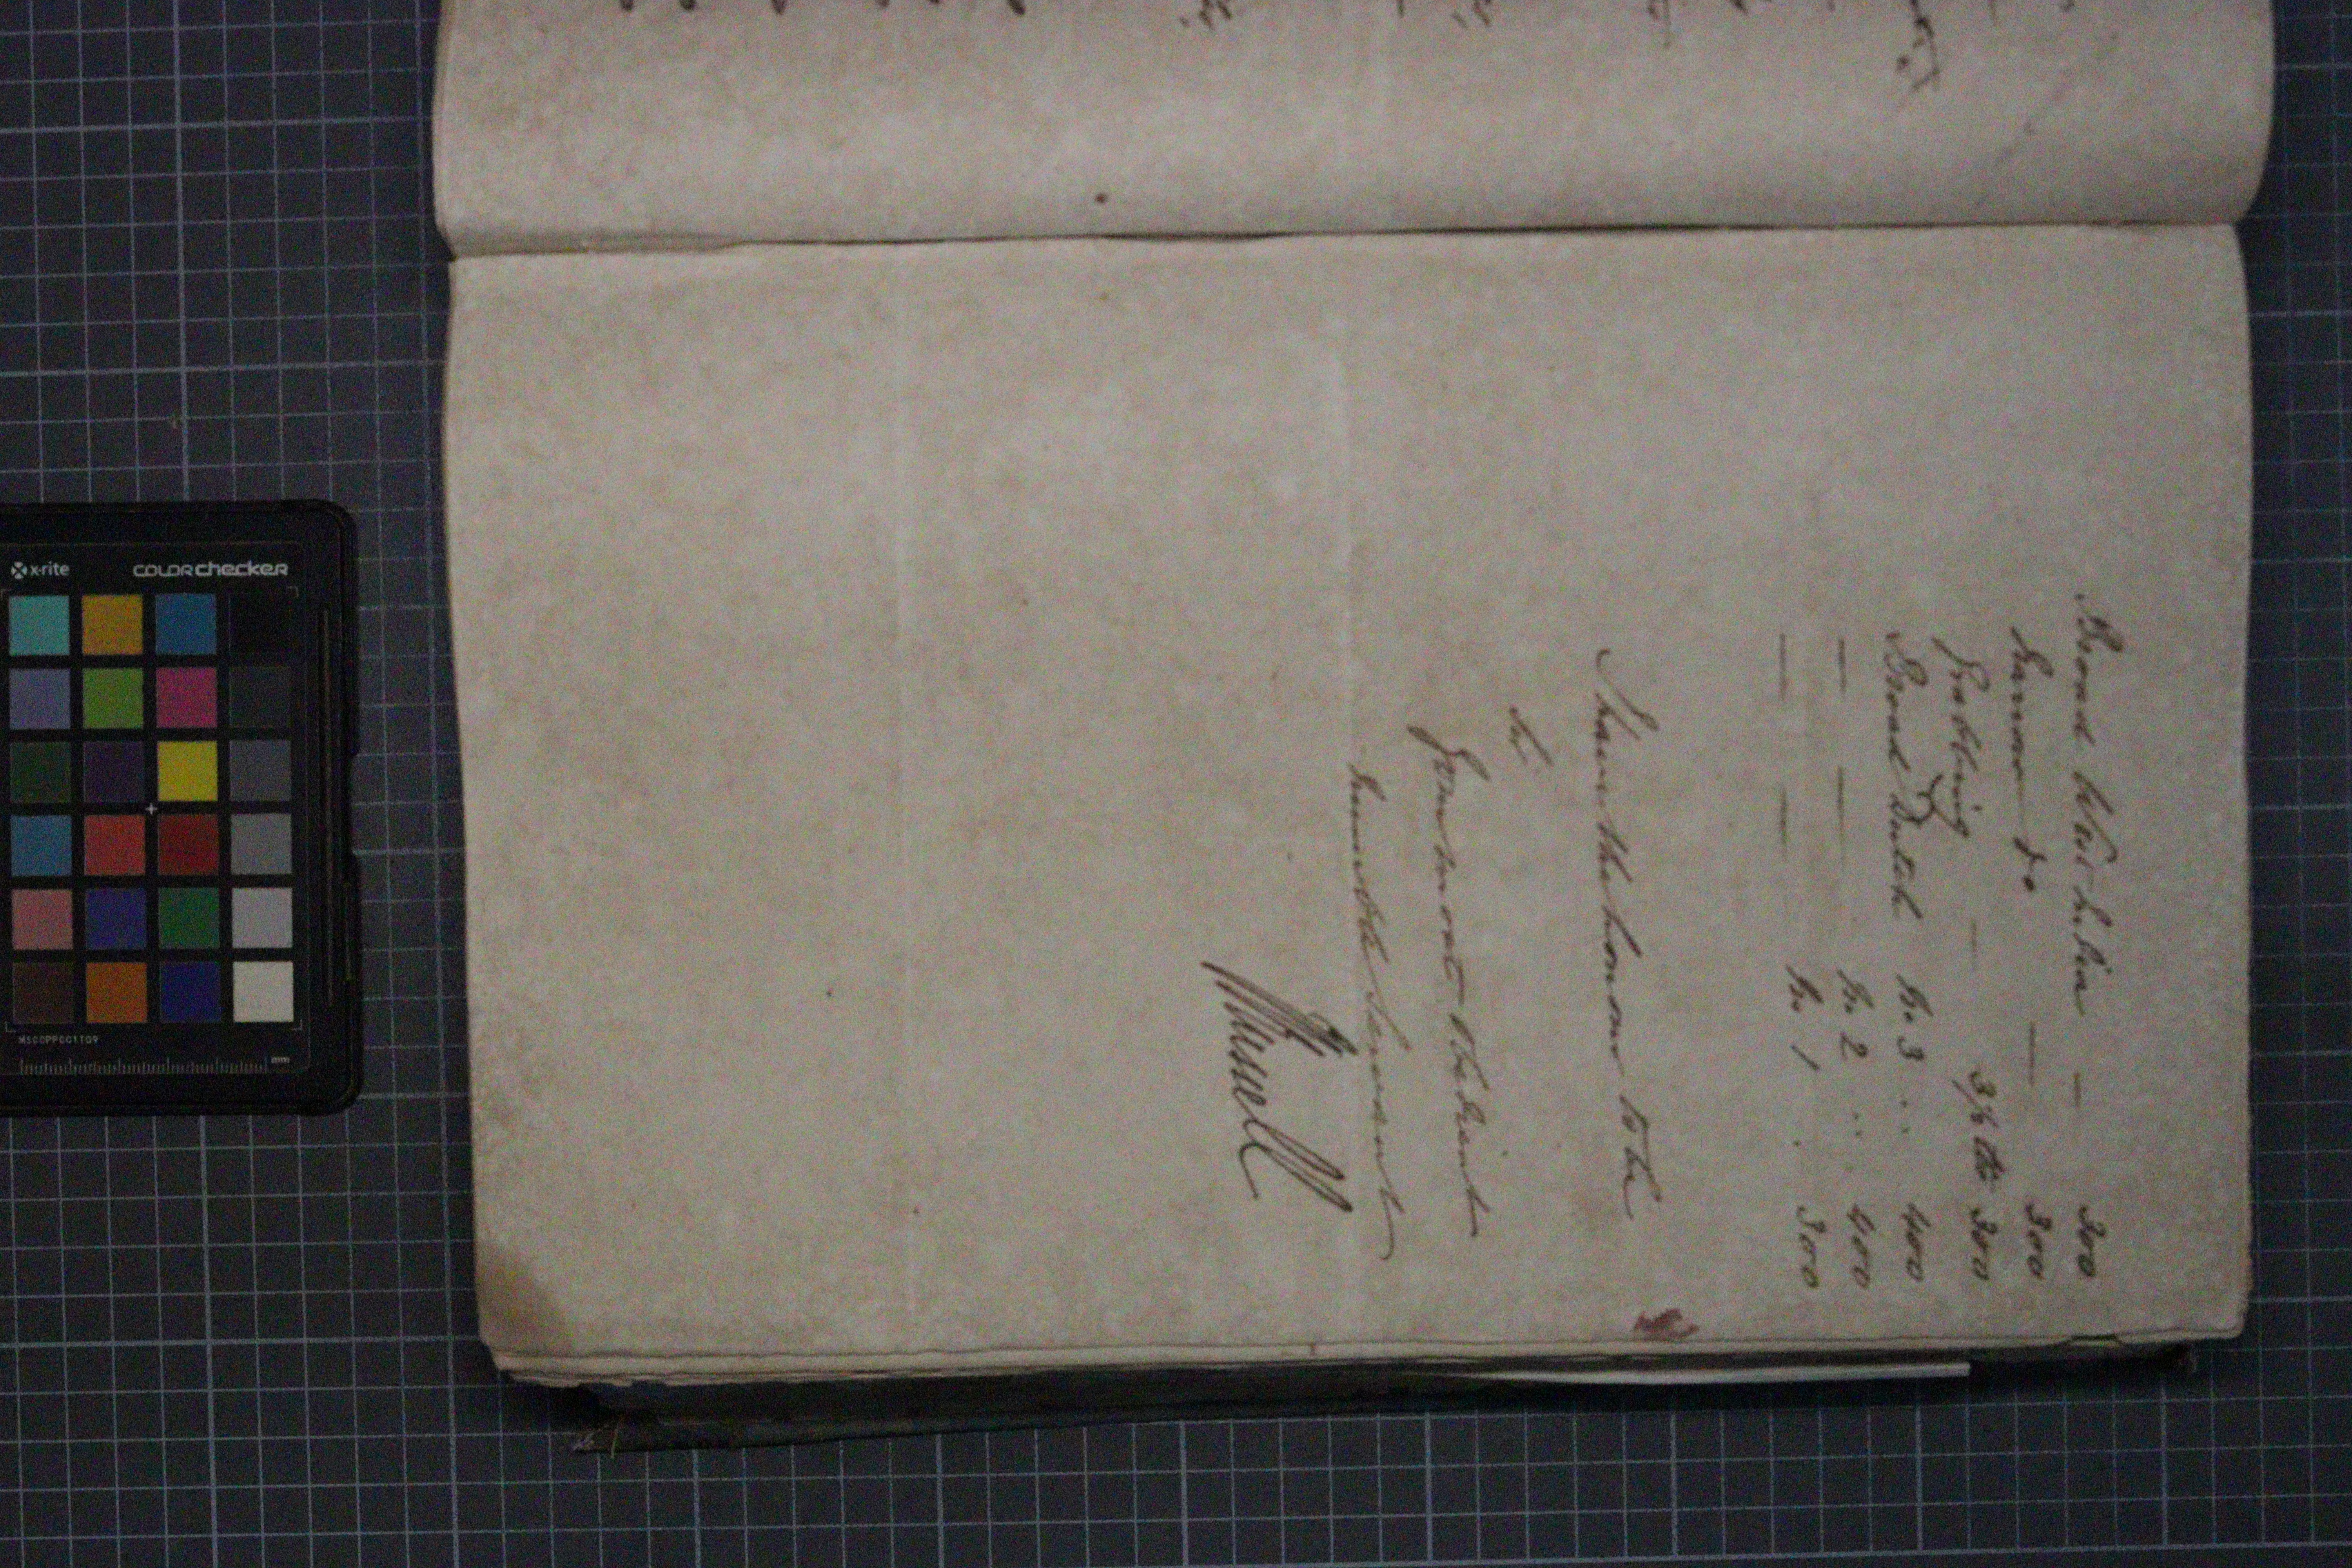 Broad West India — 300
Narrow do — 300
Grubbing — 3½ lb 300
Broad Dutch No 3 .. 400
— — No 2 .. 400
— — No 1 . 300
I have the honor to be
Sir
Your most obedient
humble Servant
x-rite
colorchecker
MSCCPPCC1109
mm